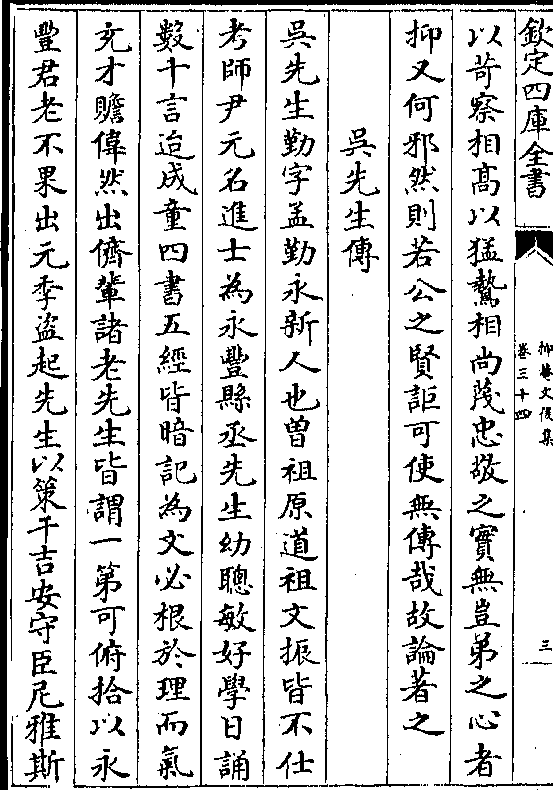 欽定四庫全書
抑菴文後集
卷三十四
三
以苛察相高以猛鷙相尚蔑忠敬之實無豈弟之心者
抑又何邪然則若公之賢詎可使無傳哉故論著之
吳先生傳
吳先生勤字孟勤永新人也曾祖原道祖文振皆不仕
考師尹元名進士為永豐縣丞先生幼聰敏好學日誦
數十言迨成童四書五經皆暗記為文必根於理而氣
充才贍偉然出儕輩諸老先生皆謂一第可俯拾以永
豐君老不果出元季盜起先生以策干吉安守臣尼雅斯